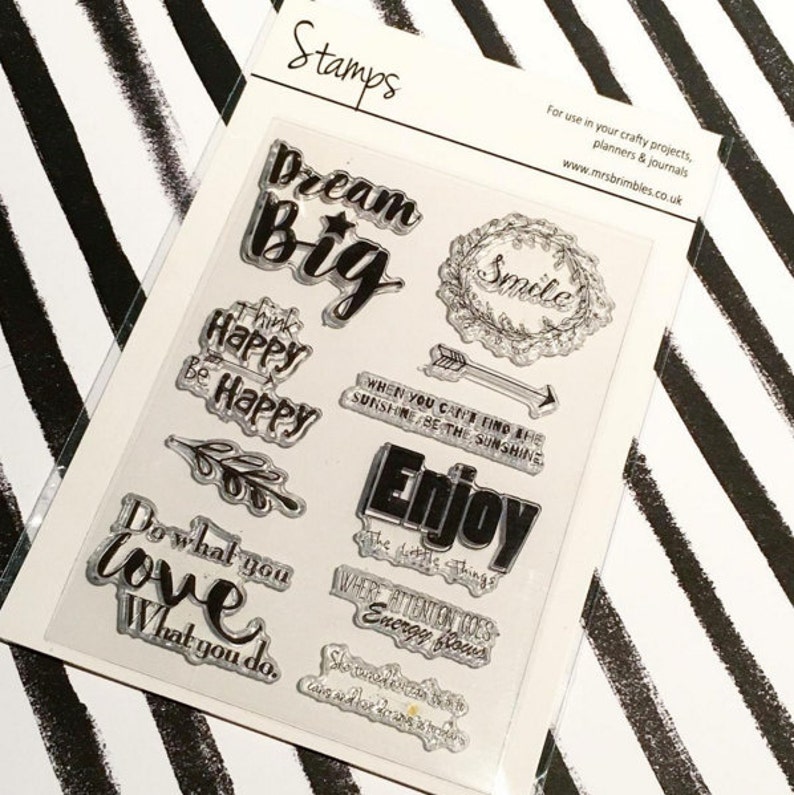 Stamps
For use in your crafty projects,
planners & journals
www.mrsbrimbles.co.uk
Dream
Big
Smile
Think
Happy
Be Happy
WHEN YOU CAN'T FIND THE
SUNSHINE, BE THE SUNSHINE.
Enjoy
The Little Things
Do what you
love
What you do.
WHERE ATTENTION GOES
Energy flows
She turned her can'ts into
cans and her dreams into plans